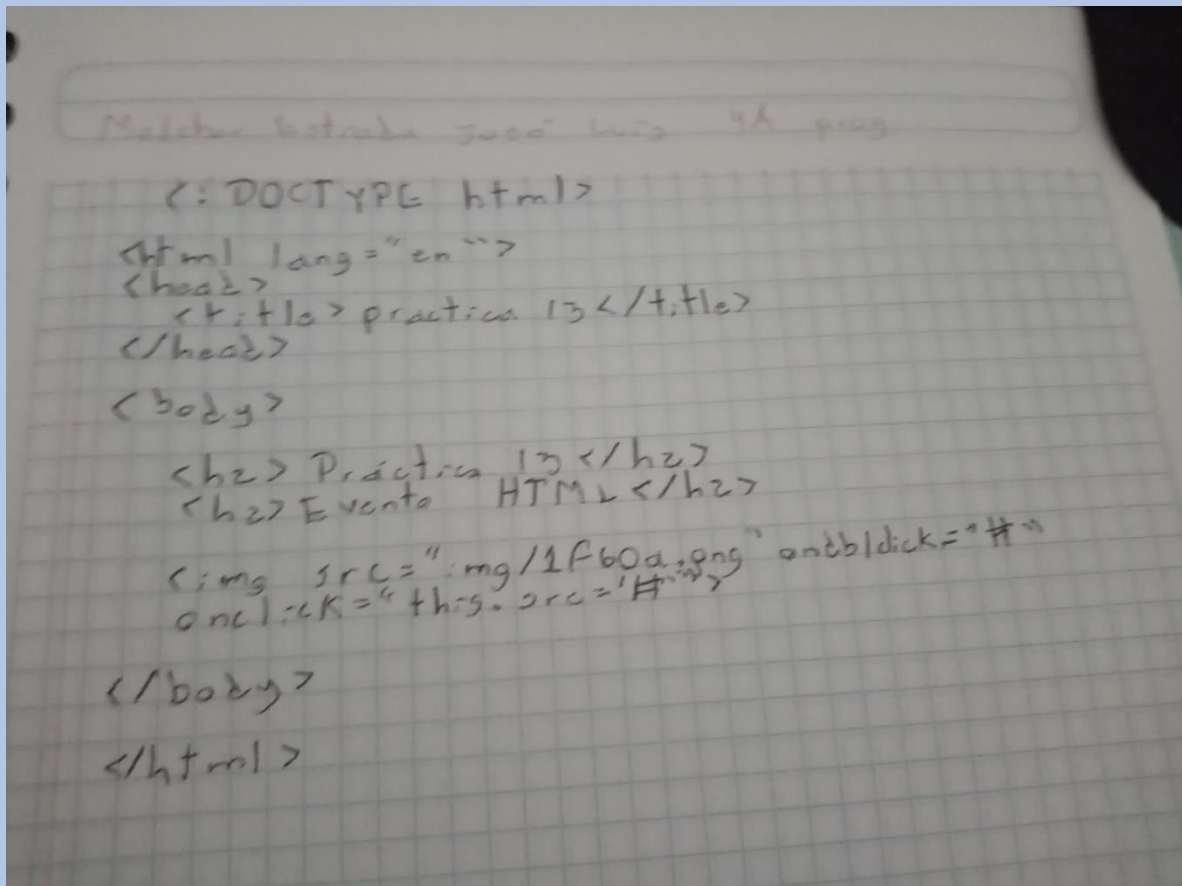 Melchor Estrada José Luis 4A prog
<!DOCTYPE html>
<html lang="en">
<head>
<title> practica 13</title>
</head>
<body>
<h2> Práctica 13 </h2>
<h2> Evento HTML </h2>
<img src="img/1f60a.png" ondblclick="#"
onclick="this.src='#'">
</body>
</html>